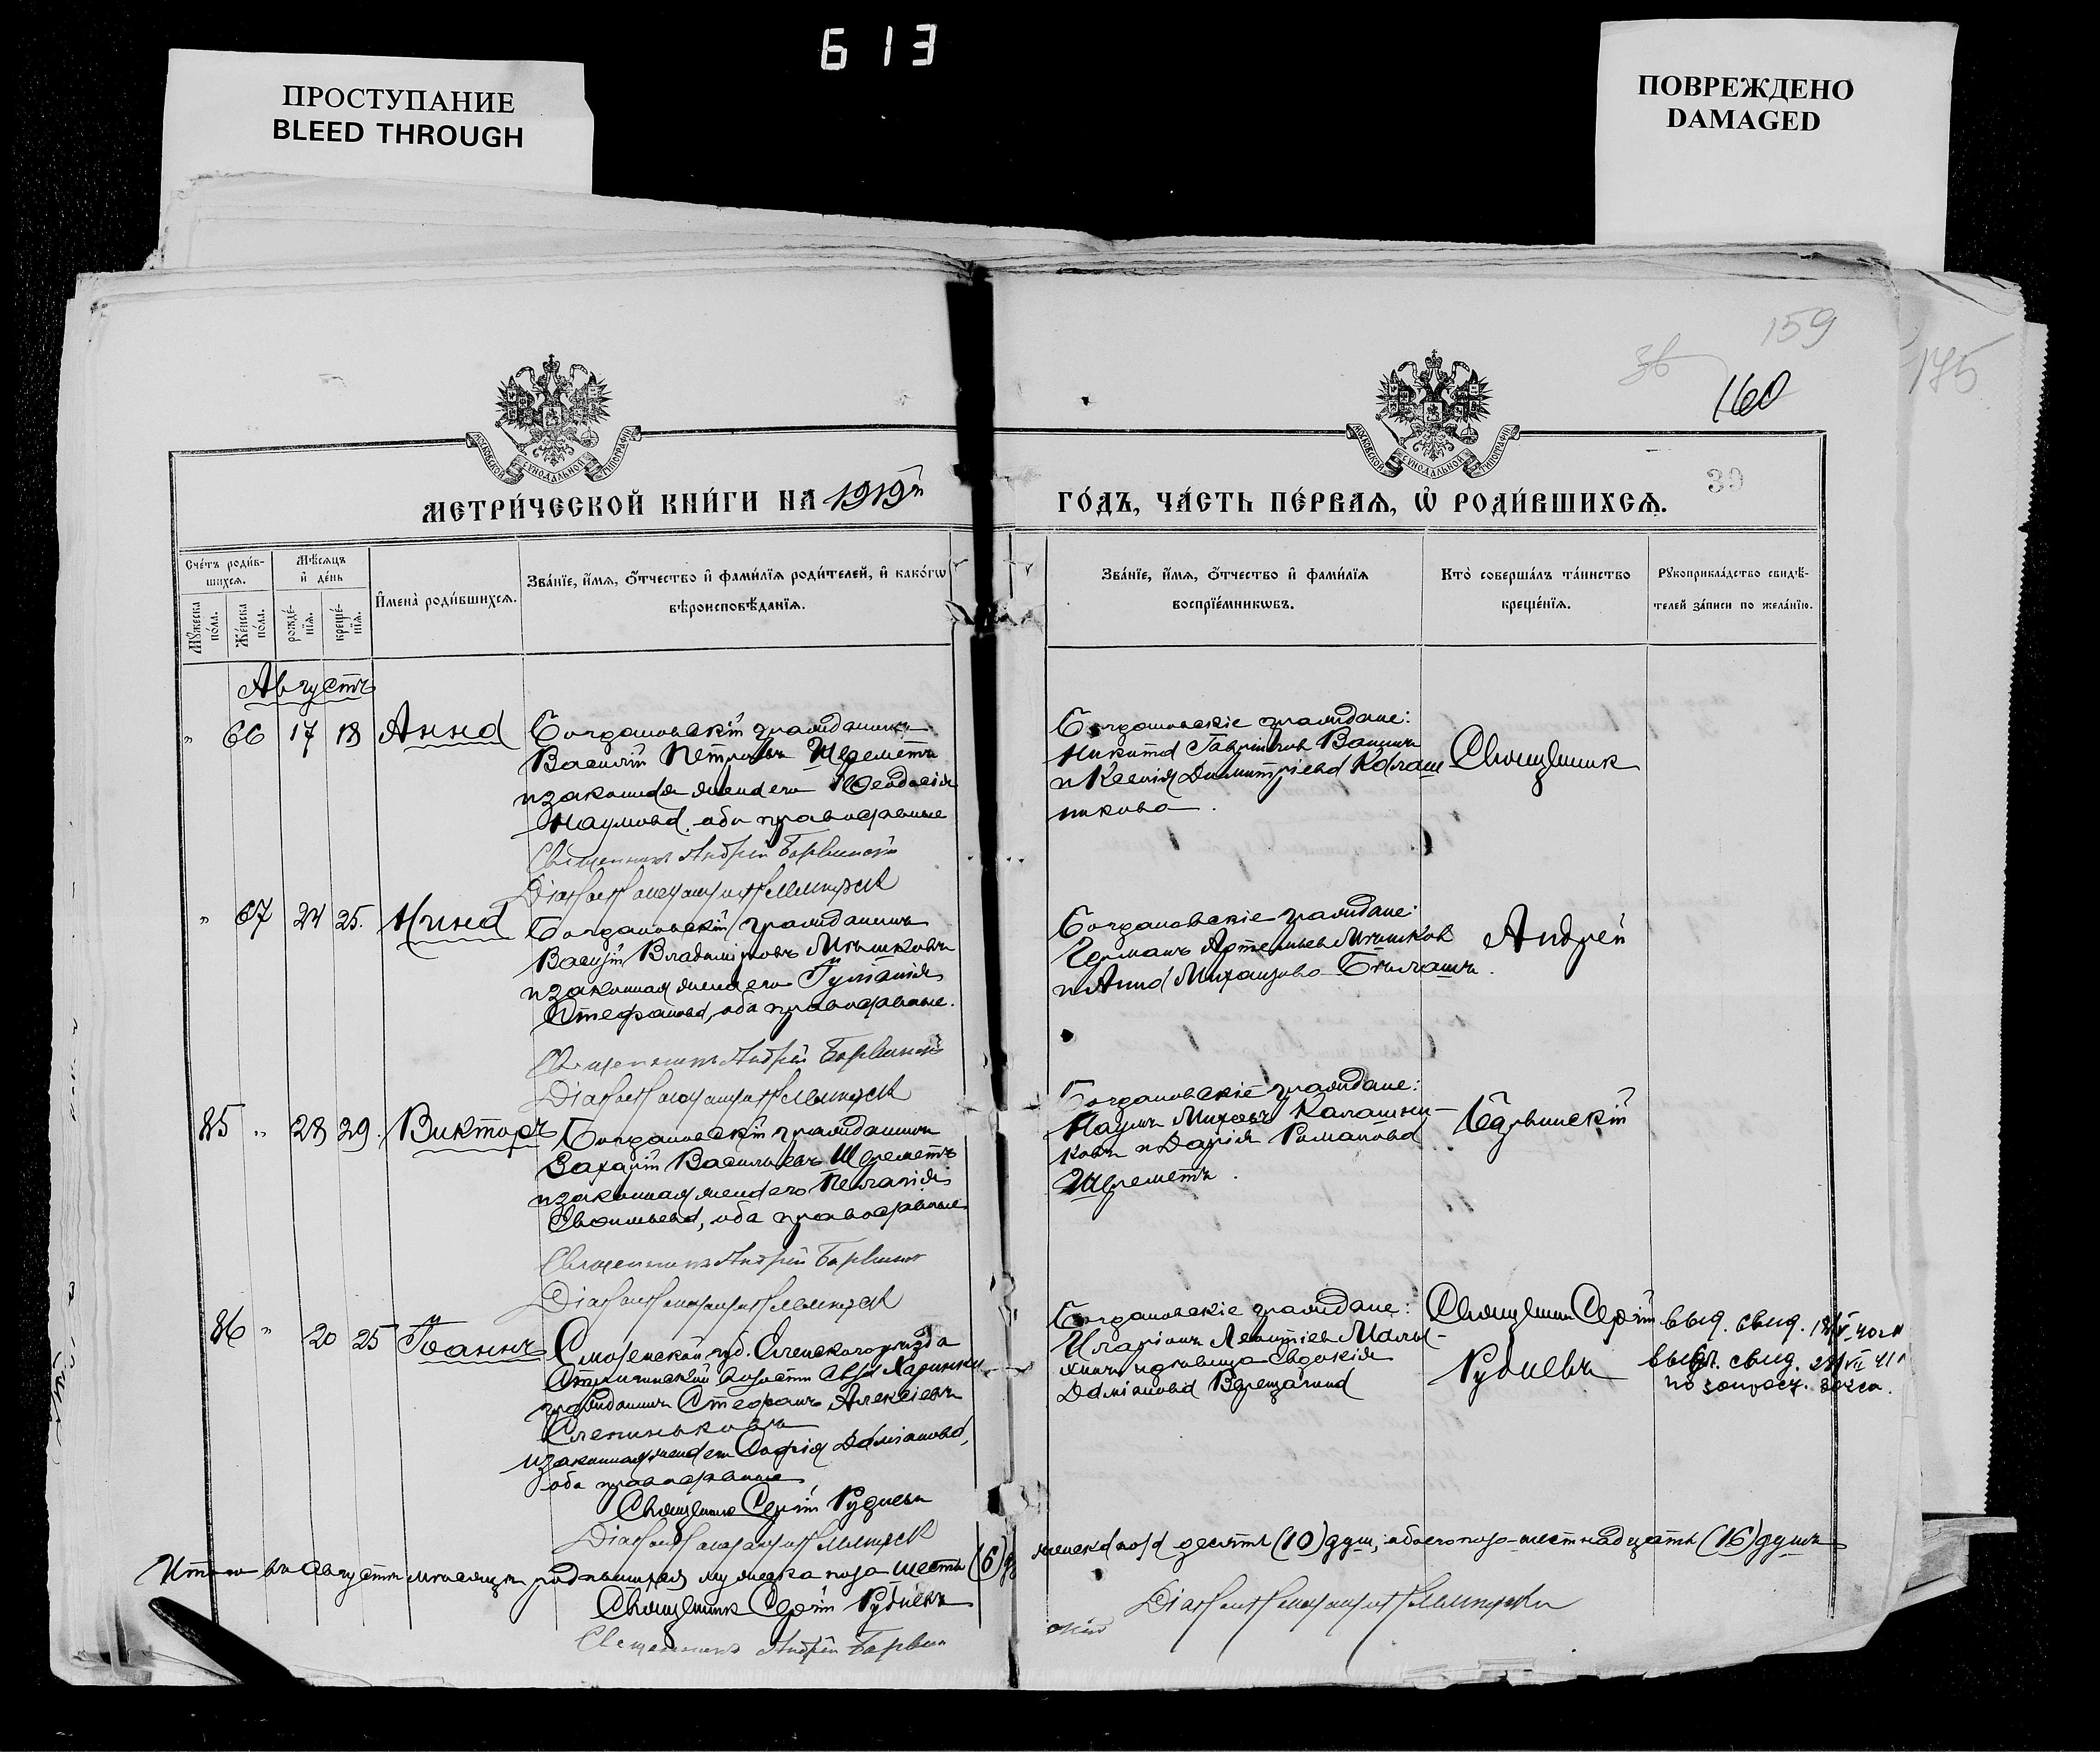 613
ПРОСТУПАНИЕ
BLEED THROUGH
ПОВРЕЖДЕНО
DAMAGED
159
36
160
175
39
МОСКОВСКОЙ СѴНОДАЛЬНОЙ ТИПОГРАФІИ
МОСКОВСКОЙ СѴНОДАЛЬНОЙ ТИПОГРАФІИ
МЕТРИ́ЧЕСКОЙ КНИ́ГИ НА 1919й
ГО́ДЪ, ЧА́СТЬ ПЕ́РВАѦ, Ѡ҆ РОДИ́ВШИХСѦ.
Сче́тъ роди́в-
шихсѧ.
Мꙋ́жеска по́ла.
Же́нска по́ла.
Мѣ́сѧцъ
и҆ де́нь
рожде́-
нїѧ.
креще́-
нїѧ.
И҆мена̀ роди́вшихсѧ.
Зва́нїе, и҆́мѧ, ѻ҆́тчество и҆ фами́лїѧ роди́телей, и҆ како́гѡ
вѣроисповѣ́данїѧ.
Зва́нїе, и҆́мѧ, ѻ҆́тчество и҆ фами́лїѧ
воспрїе́мникѡвъ.
Кто̀ соверша́лъ та́инство
креще́нїѧ.
Рꙋкоприкла́дство свидѣ́-
телей за́писи по жела́нїю.
Августъ
" 66 17 18 Анна
Богдановскій гражданинъ
Василій Петровъ Шереметъ
и законная жена его Ѳеодосія
Наумова, оба православные
Священникъ Андрей Барвинскій
Богдановскіе граждане:
Никита Гавріиловъ
и Ксенія Димитріева Калаш
никова.
Священник
" 67 24 25. Нина
Богдановскій гражданинъ
Василій Владиміровъ Мѣшковъ
и законная жена его Іуліанія
Стефанова, оба православные.
Священникъ Андрей Барвинскій
Богдановскіе граждане:
Германъ Артемьев Мѣшков
и Анна Михайлова Бѣлашъ.
Андрей
85 " 28 29. Викторъ
Богдановскій гражданинъ
Захарій Васильевъ Шереметъ
и законная жена его Пелагія
Васильева, оба православные
Священникъ Андрей Барвинс
Богдановскіе граждане:
Наумъ Михеевъ Калашни-
ковъ и Дарія Романова
Шереметъ.
Барвинскій
86 " 20 25 Іоаннъ
Смоленской губ. Ельнскаго уѣзда
гражданинъ Стефанъ Алексіевъ
и законная жена его Софія Даміанова,
оба православные
Священник Сергій Рудневъ
Богдановскіе граждане:
Иларіонъ Леонтіев
и дѣвица Евдокія
Даміанова Верещагина
Священник Сергій
Рудневъ
выд. свид.
выд. свид. 28/VII 41 г
по запросу загса.
Итого въ Августѣ мѣсяцѣ родившихся мужеска пола шесть (6) д
женска пола десять (10) душ, обоего пола шестнадцать (16) душъ
Священник Сергій Рудневъ
Священникъ Андрей Барвин
скій